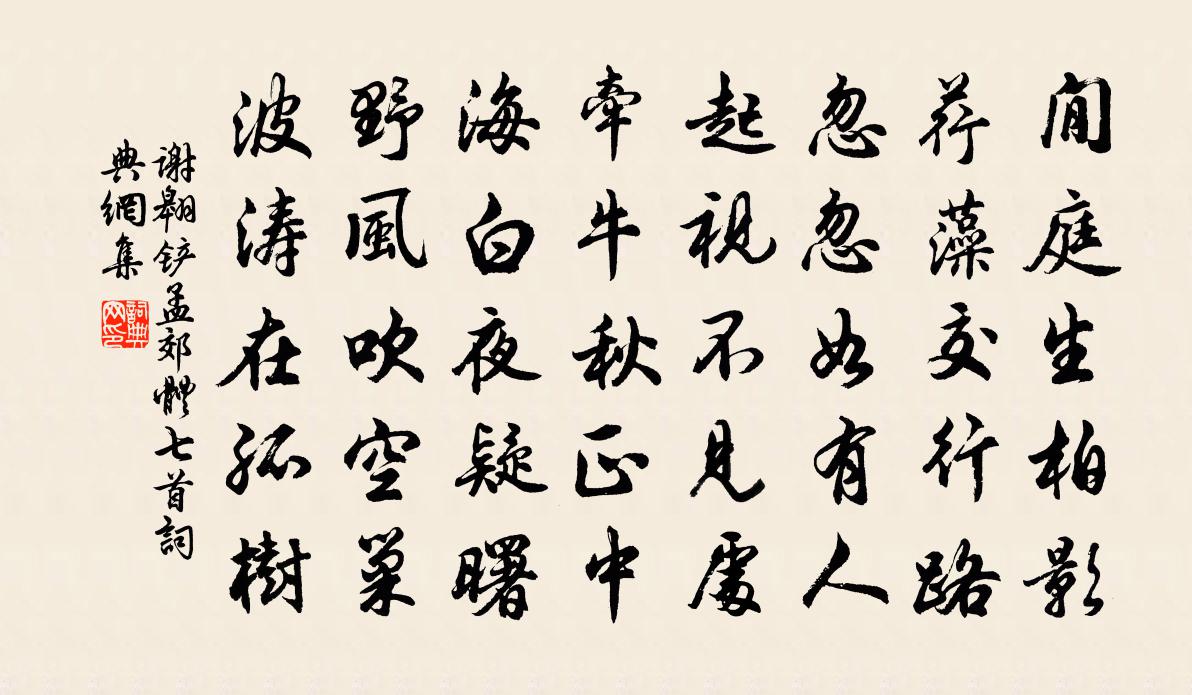 閒庭生柏影
荇藻交行路
忽忽如有人
起視不見處
牽牛秋正中
海白夜疑曙
野風吹空巢
波濤在孤樹
謝翱铲孟郊體七首詞
典網集
詞典
网印